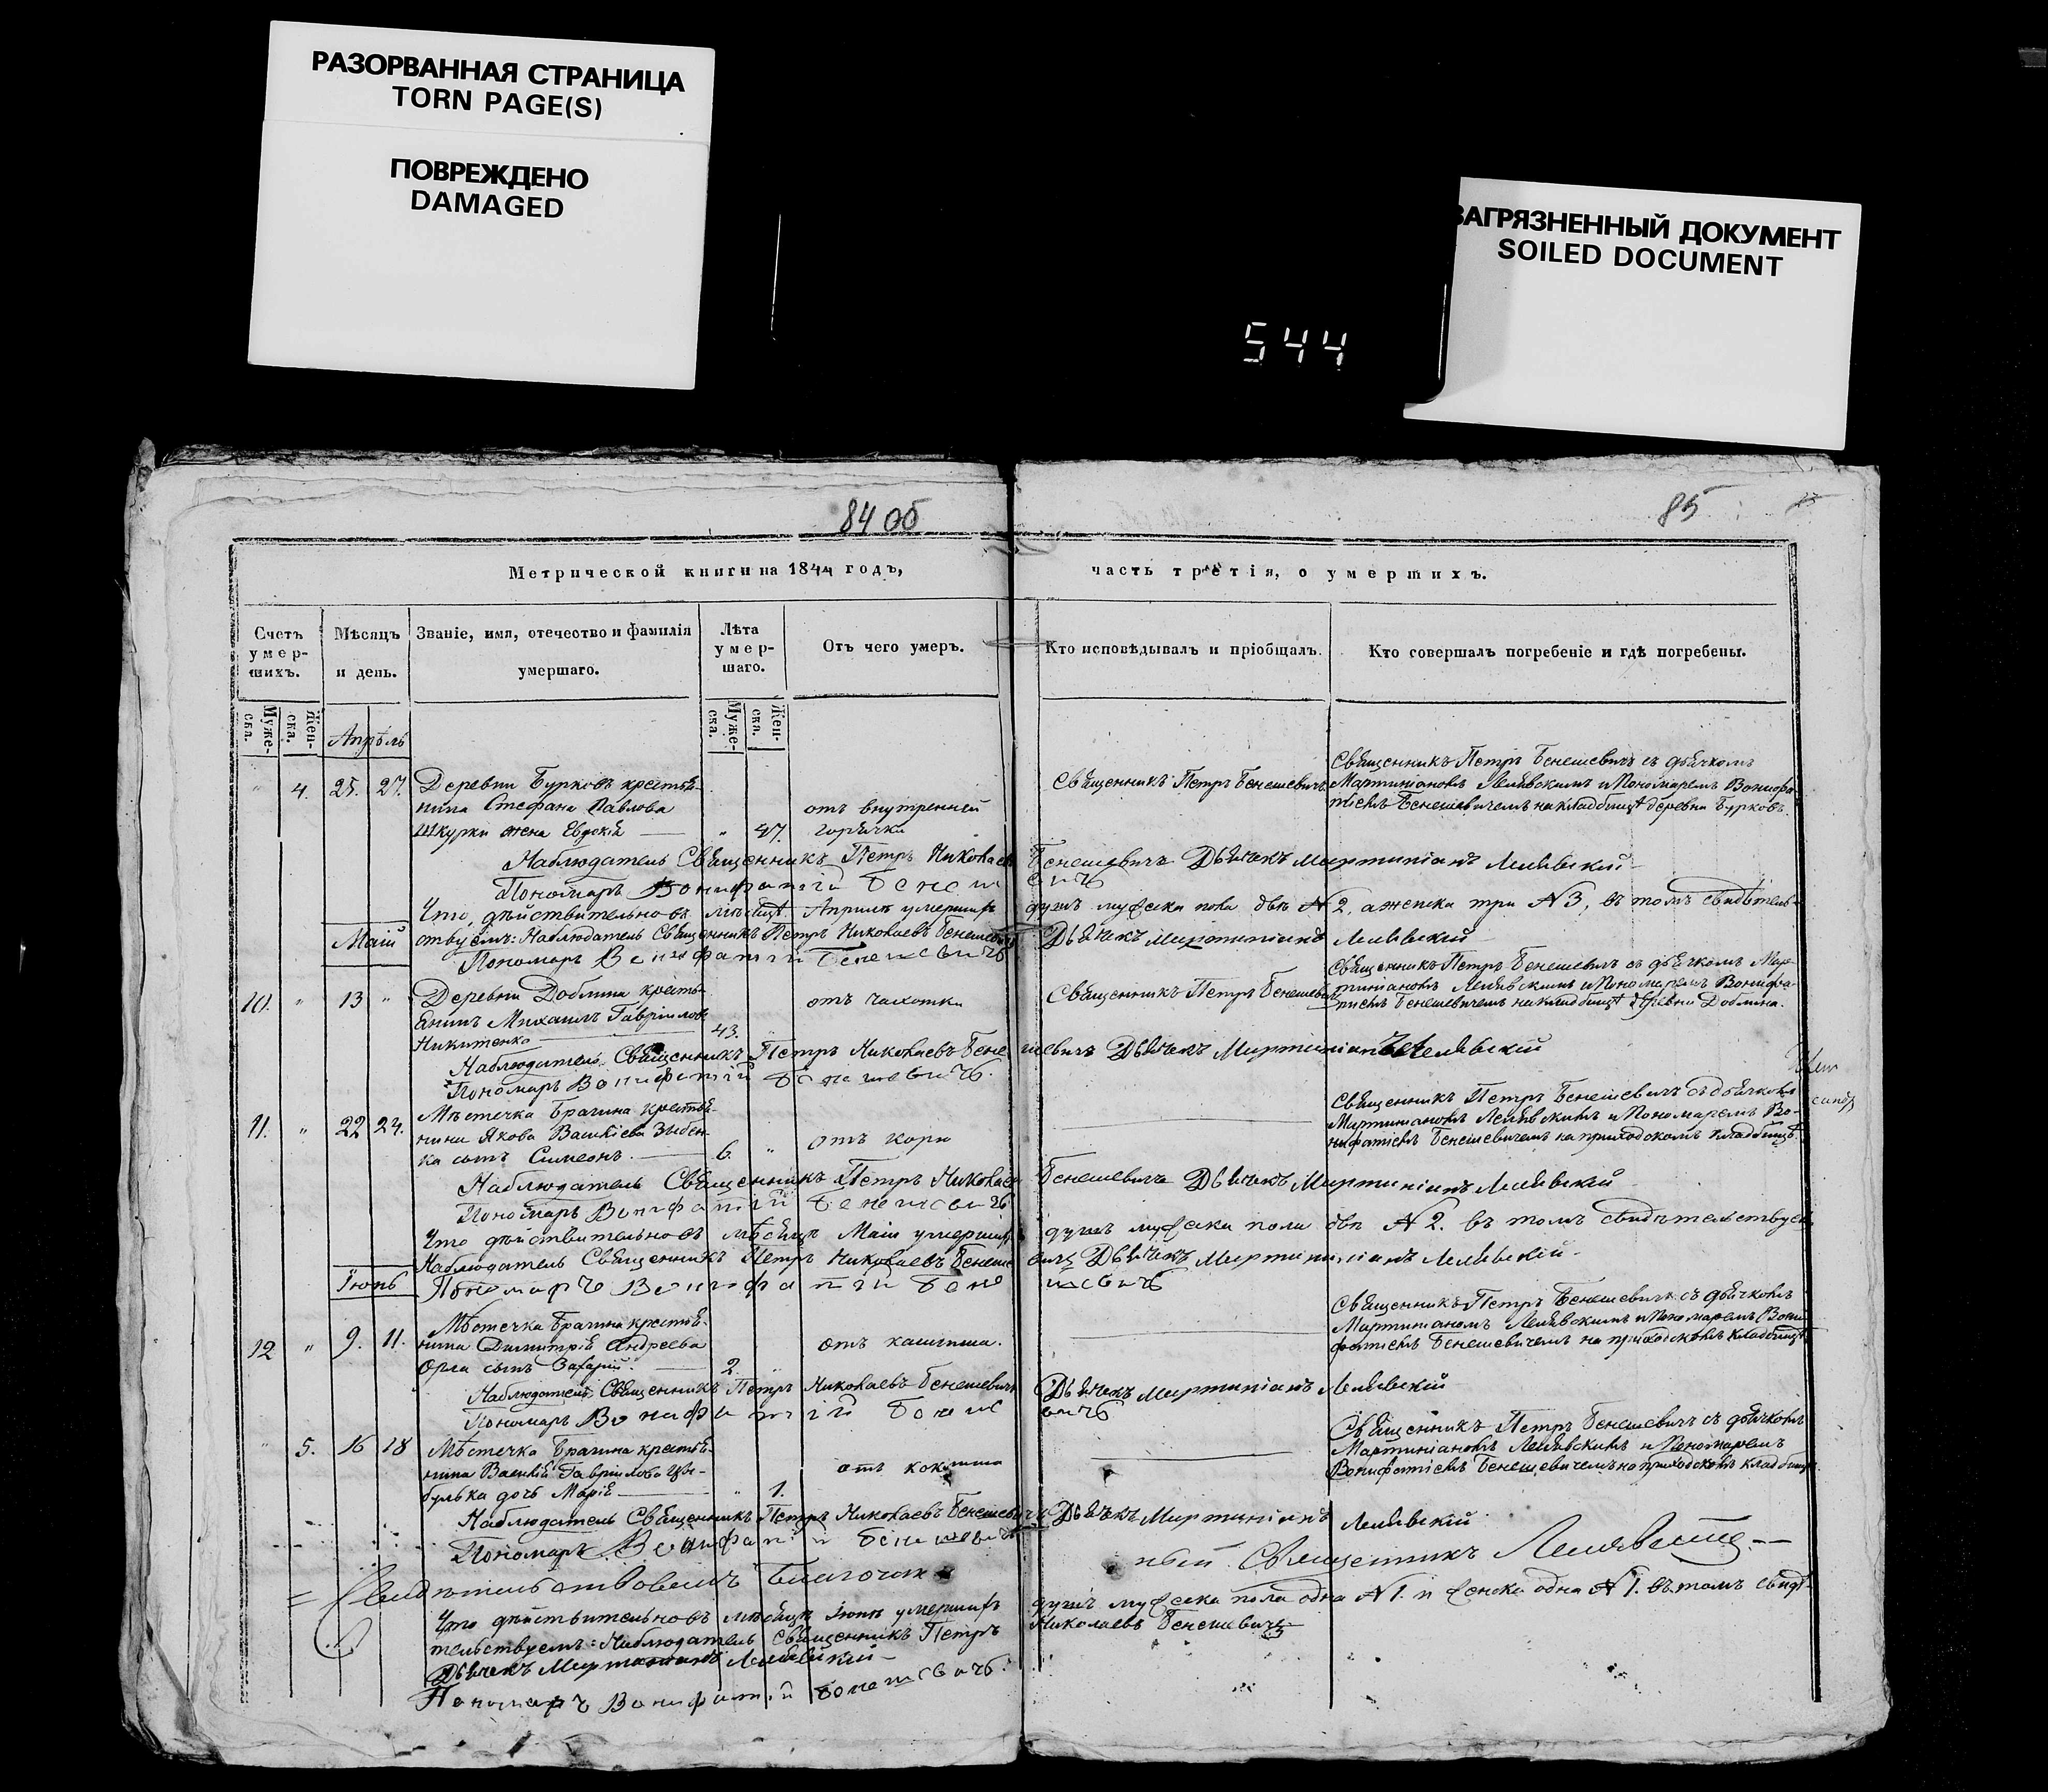 РАЗОРВАННАЯ СТРАНИЦА
TORN PAGE(S)
ПОВРЕЖДЕНО
DAMAGED
ЗАГРЯЗНЕННЫЙ ДОКУМЕНТ
SOILED DOCUMENT
544
84 об
85
Метрической книги на 1844 годъ,
часть третія, о умершихъ.
Счетъ умер-шихъ.
Мѣсяцъ и день.
Званіе, имя, отечество и фамилія умершаго.
Лѣта умер-шаго.
Отъ чего умеръ.
Кто исповѣдывалъ и пріобщалъ.
Кто совершалъ погребеніе и гдѣ погребены.
Муже-ска.
Жен-ска.
Муже-ска.
Жен-ска.
Апрѣль
Священникъ Петръ Бенешевичъ съ дьячкомъ
" 4. 25. 27. Деревни Бурковъ крестья-
Священникъ Петръ Бенешевичъ
Мартиніаномъ Лелявскимъ и Пономаремъ Вонифа-
нина Стефана Павлова
отъ внутренней
тіемъ Бенешевичемъ на кладбищѣ деревни Бурковъ.
Шкурки жена Евдокія " 47. горячки
Наблюдатель Священникъ Петръ Николаевъ Бенешевичъ Дьячекъ Мартиніанъ Лелявскій
Пономарь Вонифатій Бенешевичъ
Что дѣйствительно въ мѣсяцѣ Априлѣ умершихъ душъ мужеска пола двѣ № 2, а женска три № 3, въ томъ свидѣтель-
Маій
ствуемъ: Наблюдатель Священникъ Петръ Николаевъ Бенешевичъ Дьячекъ Мартиніанъ Лелявскій
Пономарь Вонифатій Бенешевичъ
Священникъ Петръ Бенешевичъ съ дьячкомъ Мар-
10. " 13 " Деревни Доблина кресть-
отъ чахотки
Священникъ Петръ Бенешевичъ
тиніаномъ Лелявскимъ и Пономаремъ Вонифа-
янинъ Михаилъ Гавриловъ
тіемъ Бенешевичемъ на кладбищѣ деревни Доблина.
Никитенко 43. "
Наблюдатель Священникъ Петръ Николаевъ Бенешевичъ Дьячекъ Мартиніанъ Лелявскій
Пономарь Вонифатій Бенешевичъ.
Священникъ Петръ Бенешевичъ съ дьячкомъ
11. " 22 24. Мѣстечка Брагина крестья-
Мартиніаномъ Лелявскимъ и Пономаремъ Во-
нина Якова Василіева
отъ кори
нифатіемъ Бенешевичемъ на приходскомъ кладбищѣ.
ка сынъ Симеонъ. 6. "
Наблюдатель Священникъ Петръ Николаевъ Бенешевичъ Дьячекъ Мартиніанъ Лелявскій
Пономарь Вонифатій Бенешевичъ
Что дѣйствительно въ мѣсяцѣ Маіи умершихъ душъ мужеска пола двѣ № 2. въ томъ свидѣтельствуемъ
Наблюдатель Священникъ Петръ Николаевъ Бенешевичъ Дьячекъ Мартиніанъ Лелявскій
Іюнь
Пономарь Вонифатій Бенешевичъ
Священникъ Петръ Бенешевичъ съ дьячкомъ
12 " 9. 11. Мѣстечка Брагина крестья-
Мартиніаномъ Лелявскимъ и Пономаремъ Вони-
нина Димитрія Андреева
отъ кашлюша.
фатіемъ Бенешевичемъ на приходскомъ кладбищѣ
Орла сынъ Захарій. 2. "
Наблюдатель Священникъ Петръ Николаевъ Бенешевичъ Дьячекъ Мартиніанъ Лелявскій
Пономарь Вонифатій Бенешевичъ
Священникъ Петръ Бенешевичъ съ дьячкомъ
" 5. 16 18 Мѣстечка Брагина крестья-
Мартиніаномъ Лелявскимъ и Пономаремъ
нина Василія Гаврилова
отъ
Вонифатіемъ Бенешевичемъ на приходскомъ кладбищѣ.
булька дочь Марія " 1.
Наблюдатель Священникъ Петръ Николаевъ Бенешевичъ Дьячекъ Мартиніанъ Лелявскій
Пономарь Вонифатій Бенешевичъ
Священникъ
Что дѣйствительно въ мѣсяцѣ Іюнѣ умершихъ душъ мужеска пола одна № 1. и женска одна № 1. въ томъ свидѣ-
тельствуемъ: Наблюдатель Священникъ Петръ Николаевъ Бенешевичъ
Дьячекъ Мартиніанъ Лелявскій
Пономарь Вонифатій Бенешевичъ.